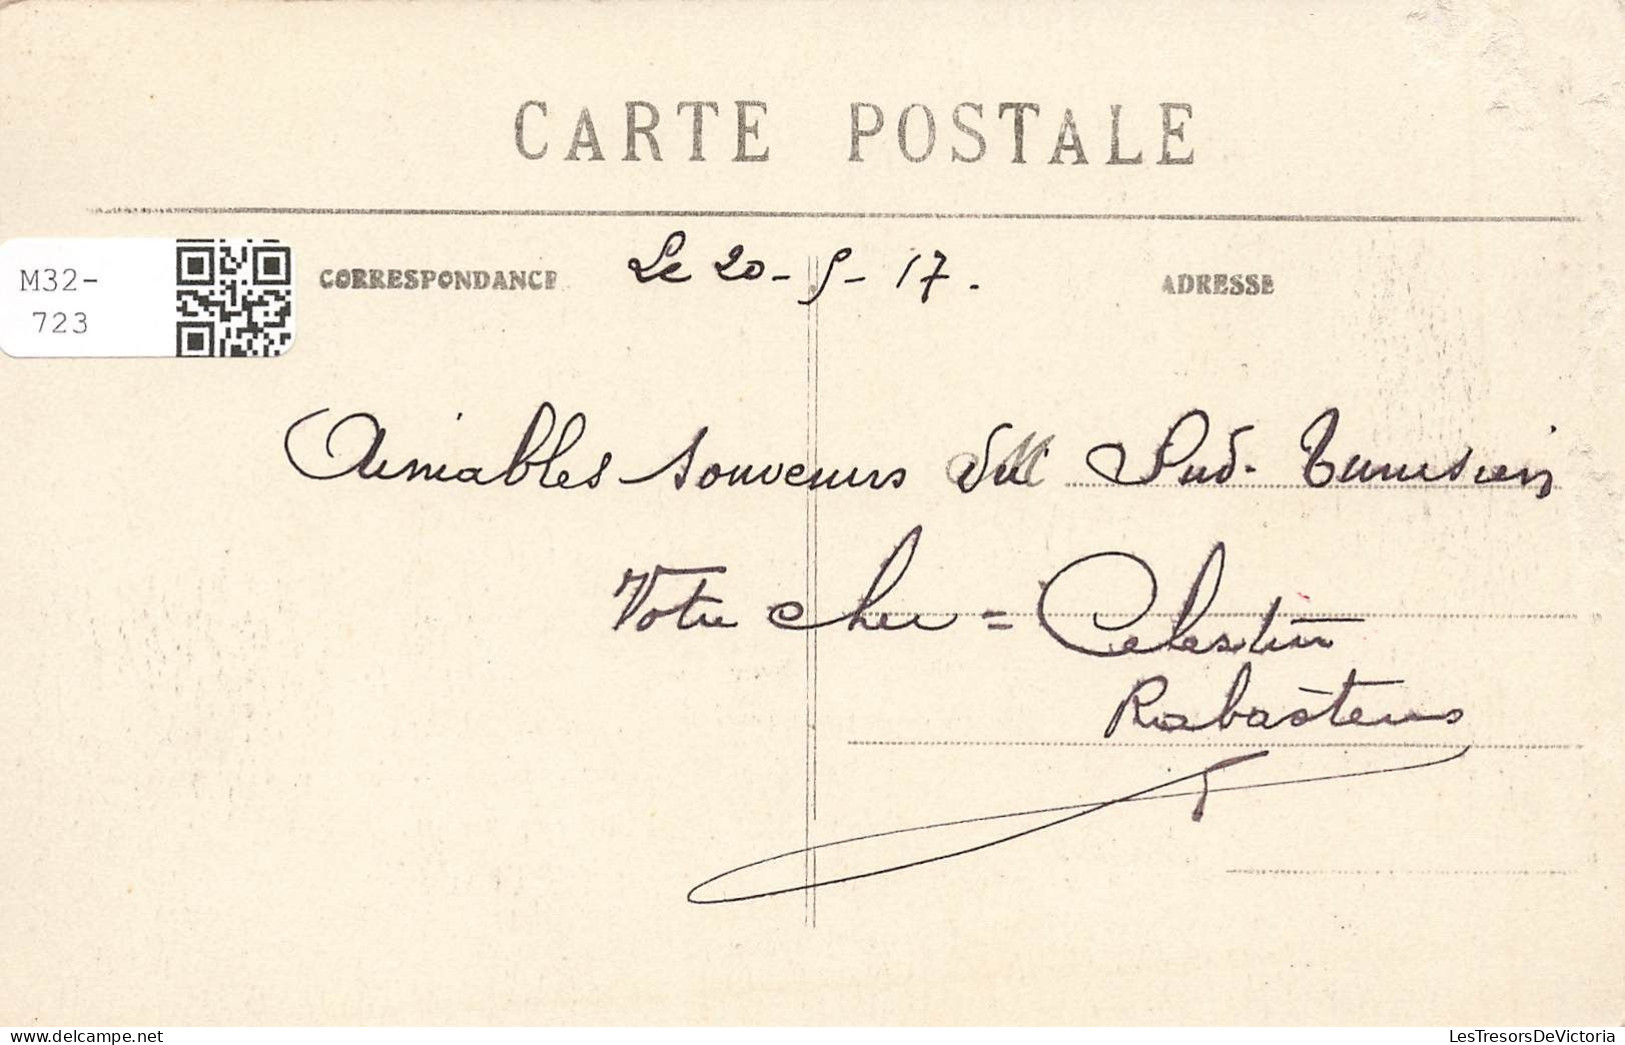 CARTE POSTALE
M32-
723
CORRESPONDANCE
Le 20-5-17.
ADRESSE
Aimables souvenirs du Sud-Tunisien
Votre cher = Celestin
Rabastens
delcampe.net
LesTresorsDeVictoria